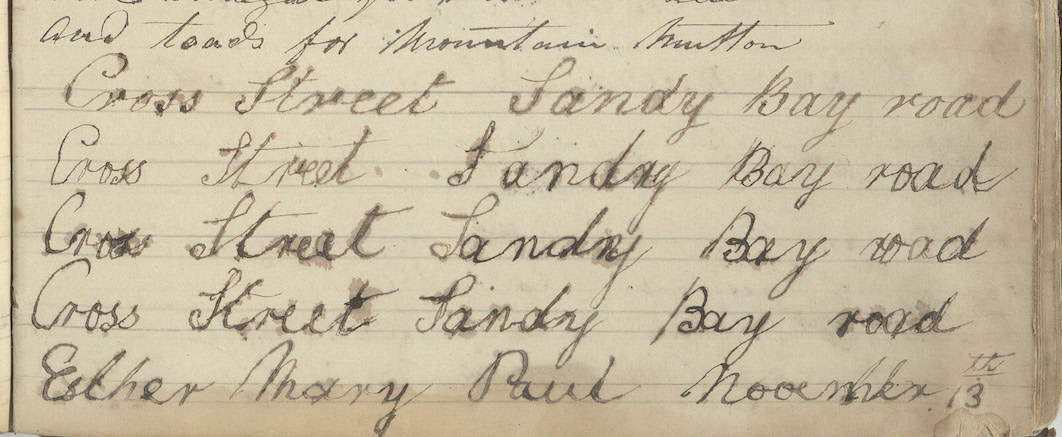 and toads for Mountain Mutton
Cross Street Sandy Bay road
Cross Street Sandry Bay road
Cross Street Sandry Bay road
Cross Street Sandy Bay road
Esther Mary Paul November 13th